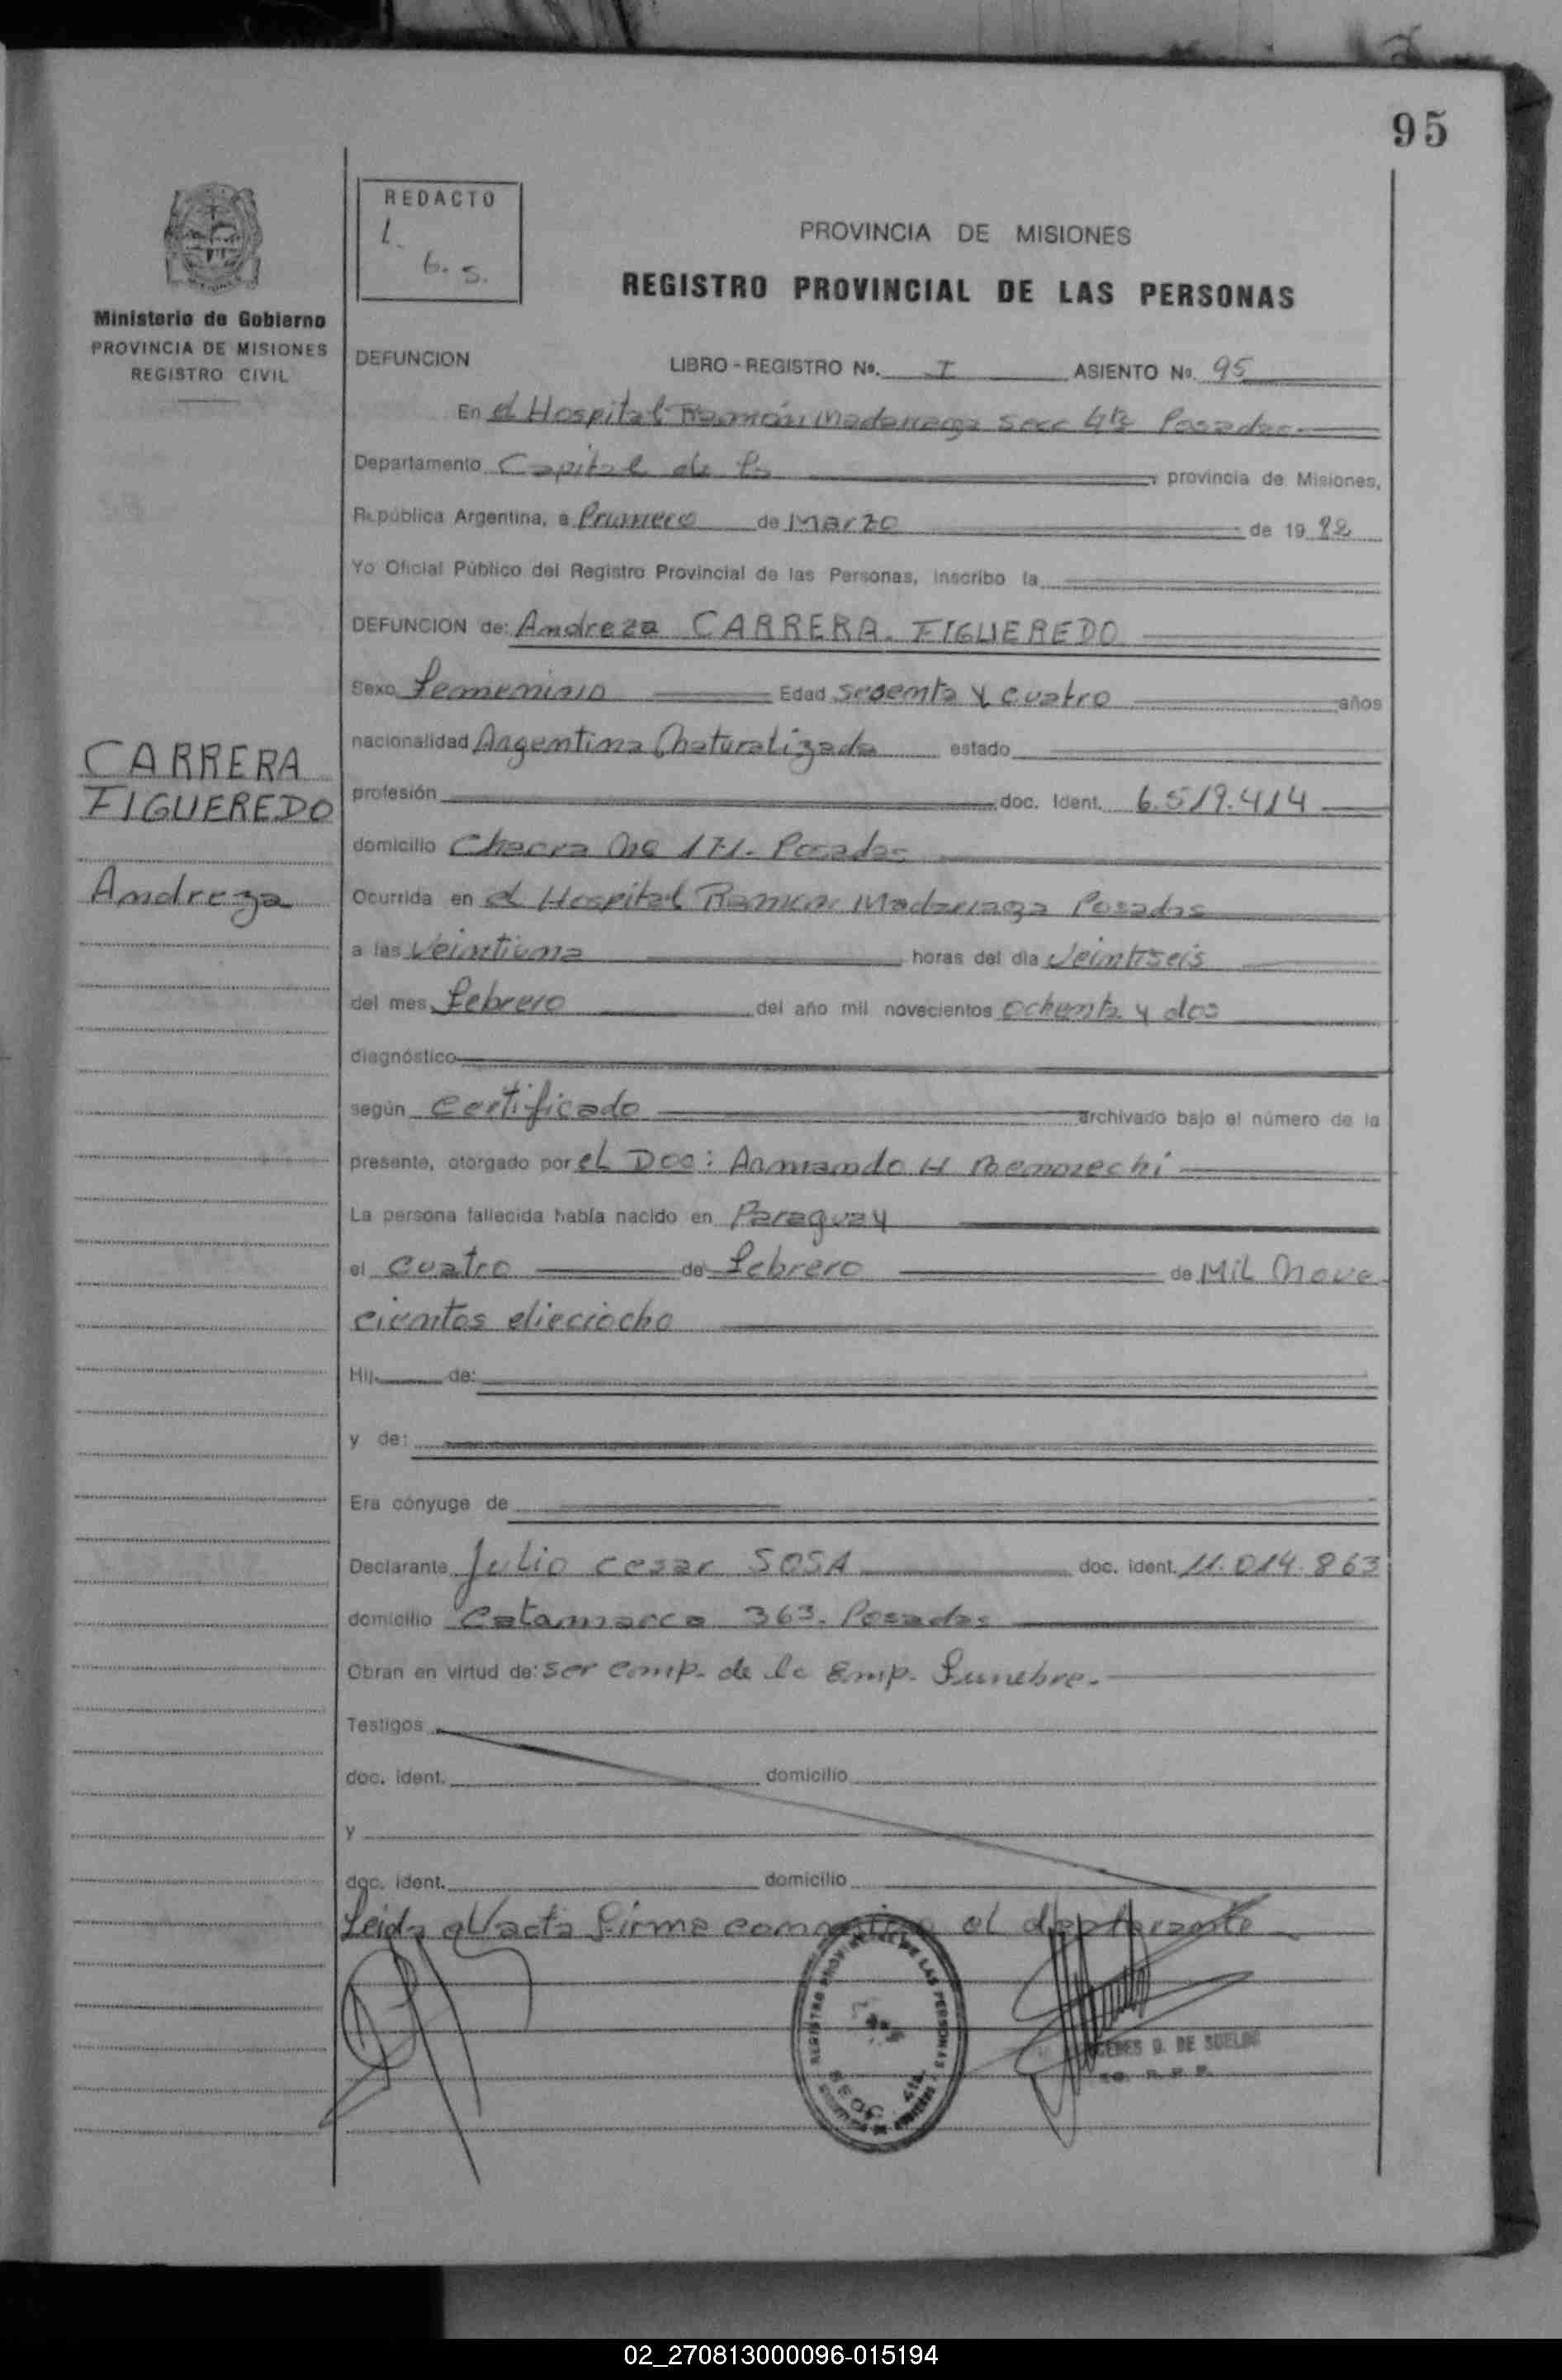 95
REDACTO
L.
6. S.
PROVINCIA DE MISIONES
REGISTRO PROVINCIAL DE LAS PERSONAS
Ministerio de Gobierno
PROVINCIA DE MISIONES
REGISTRO CIVIL
DEFUNCION LIBRO - REGISTRO Nº. I ASIENTO Nº. 95
En el Hospital Ramón Madariaga Secc 4ta Posadas.
Departamento Capital de la provincia de Misiones,
República Argentina, a Primero de Marzo de 19 82
Yo Oficial Público del Registro Provincial de las Personas, inscribo la
DEFUNCION de: Andreza CARRERA. FIGUEREDO
Sexo Femenino Edad sesenta y cuatro años
nacionalidad Argentina Naturalizada estado
CARRERA
FIGUEREDO
Andreza
profesión doc. Ident. 6.519.414
domicilio Chacra No 171. Posadas
Ocurrida en el Hospital Ramon Madariaga Posadas
a las Veintiuna horas del día Veintiseis
del mes febrero del año mil novecientos ochenta y dos
diagnóstico
según certificado archivado bajo el número de la
presente, otorgado por el Doc: Armando H
La persona fallecida había nacido en Paraguay
el cuatro de febrero de Mil nove
cientos dieciocho
Hij de:
y de:
Era cónyuge de
Declarante Julio cesar SOSA doc. ident. 11.014.863
domicilio Catamarca 363. Posadas
Obran en virtud de: ser emp. de la Emp. Funebre.
Testigos
doc. ident. domicilio
y
doc. ident. domicilio
Leida el acta firma conmigo el declarante
REGISTRO PROVINCIAL DE LAS PERSONAS
SECC. 4ta
DE SUELDO
02_270813000096-015194